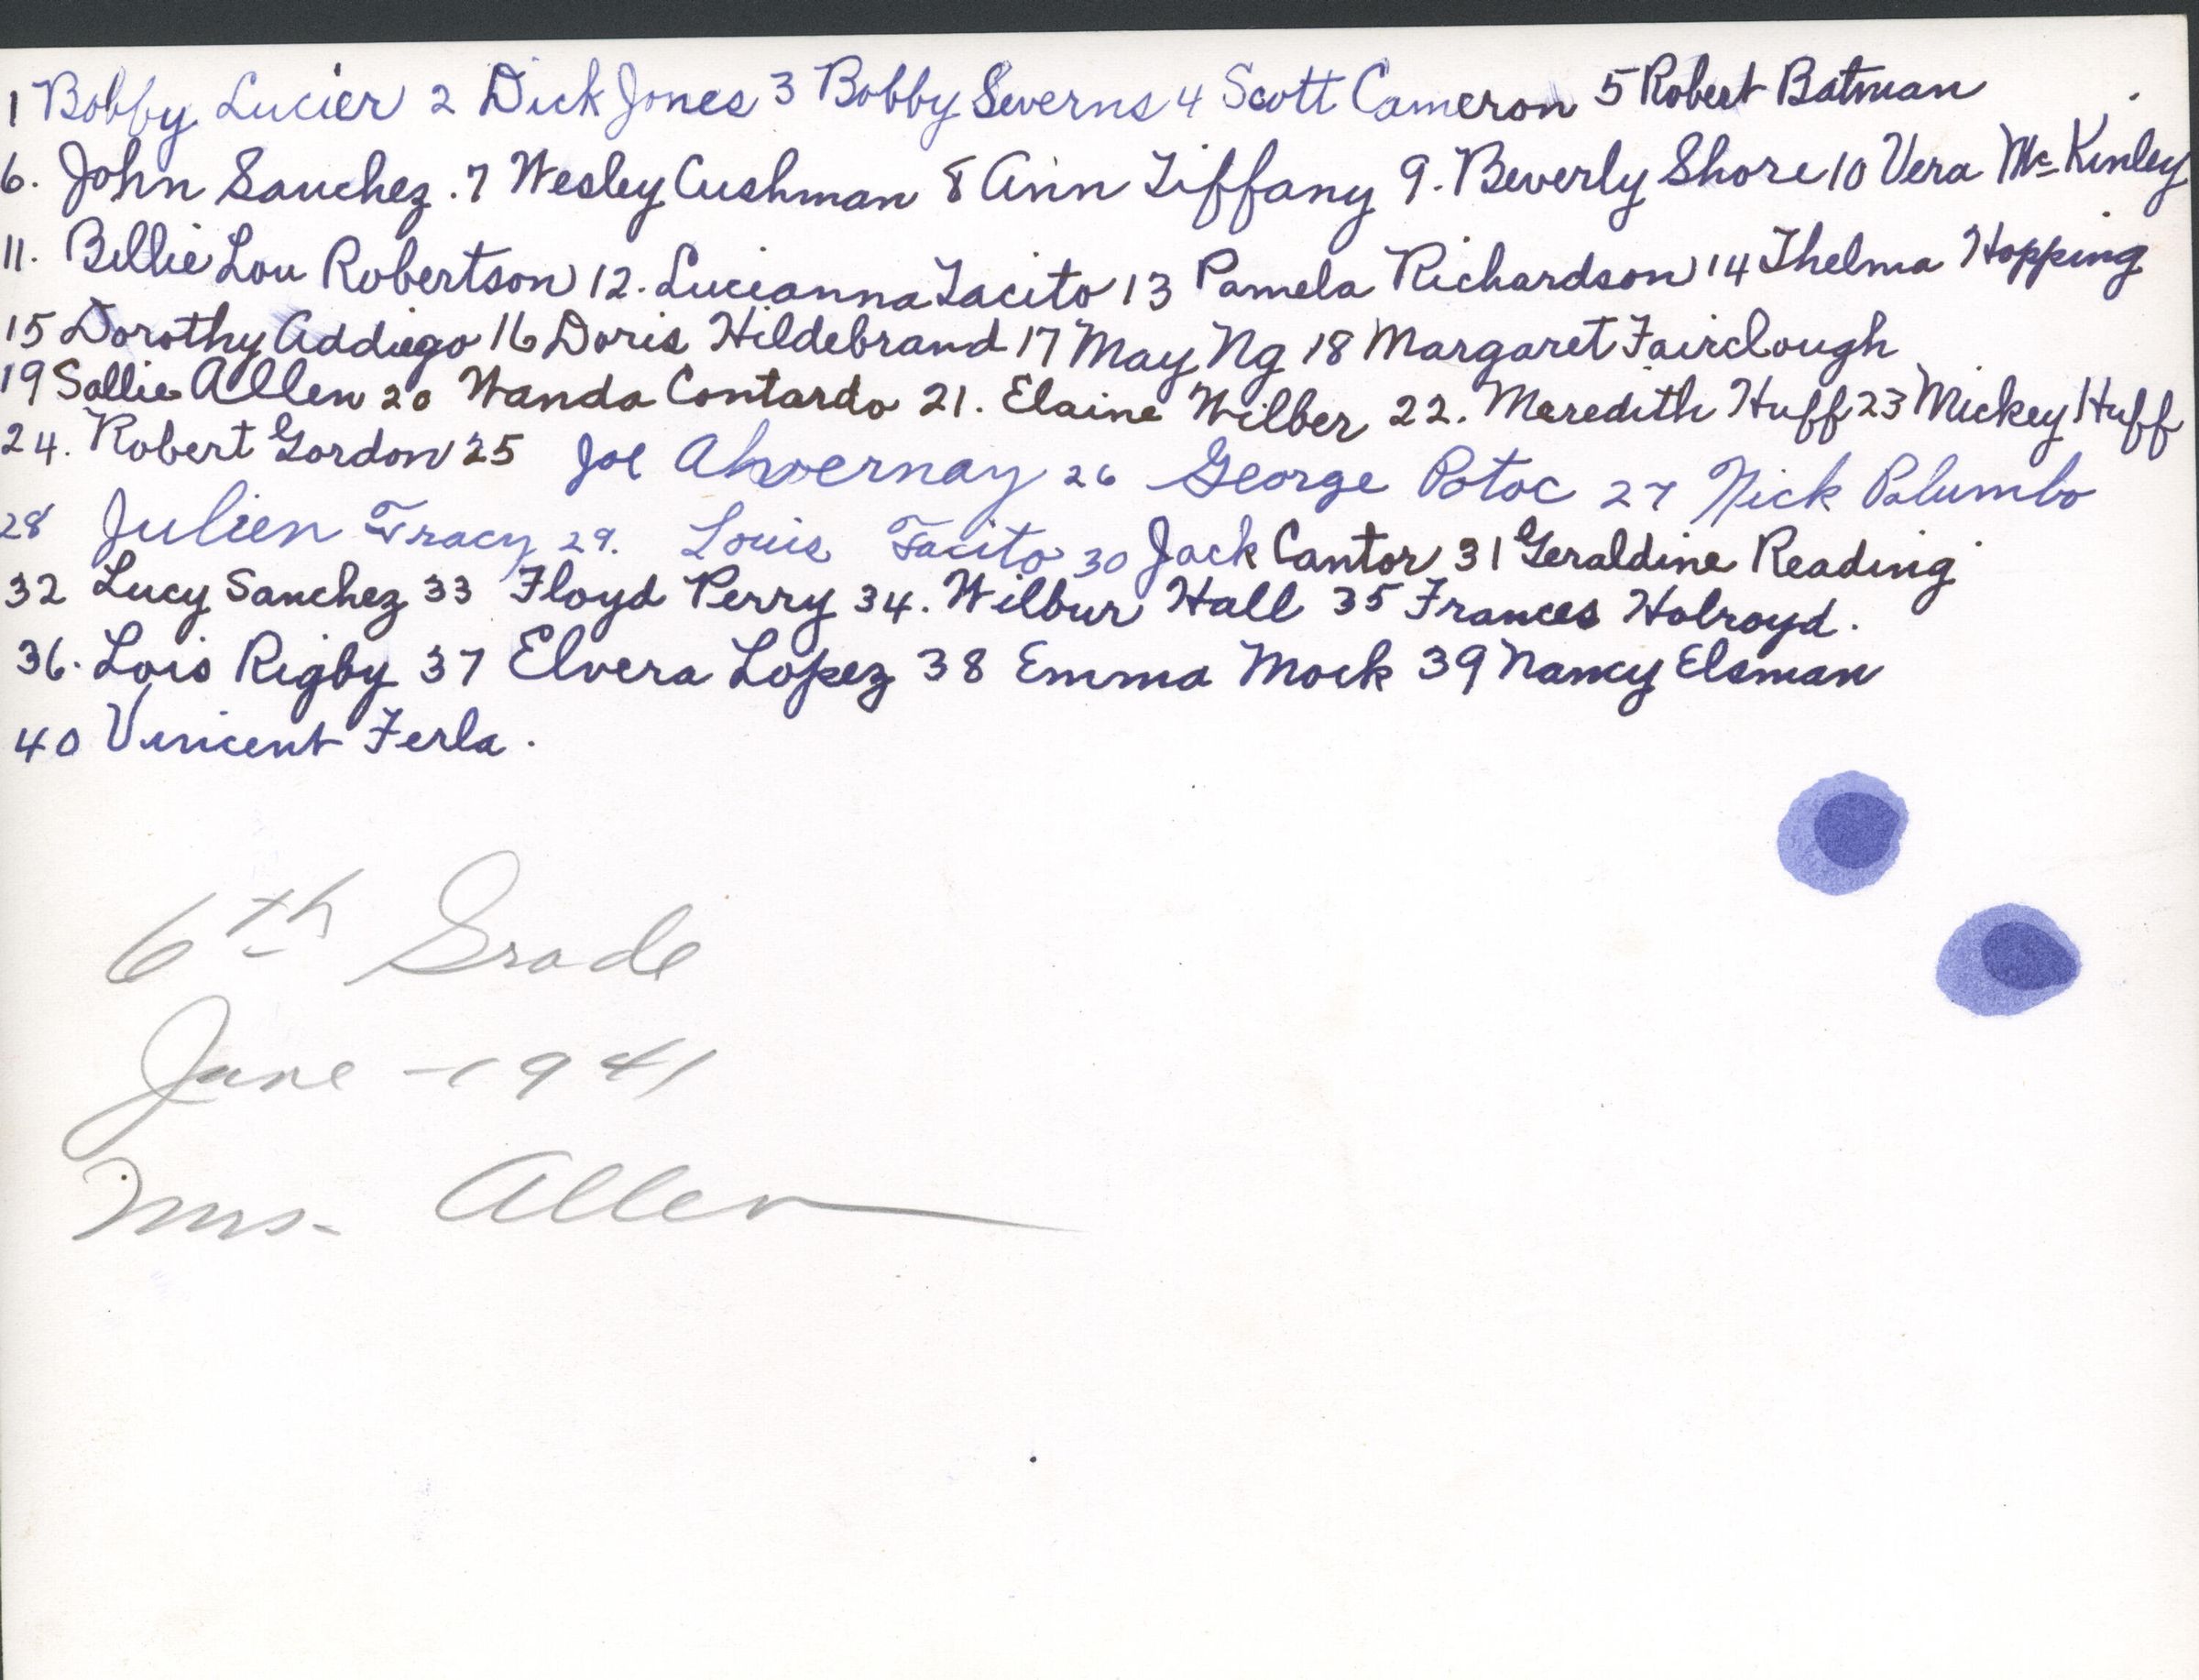 1 Bobby Lucier 2 Dick Jones 3 Bobby Severns 4 Scott Cameron 5 Robert Batman
6. John Sanchez. 7 Wesley Cushman 8 Ann Tiffany 9. Beverly Shore 10 Vera McKinley
11. Billie Lou Robertson 12. Lucianna Tacito 13 Pamela Richardson 14 Thelma Hopping
15 Dorothy Addiego 16 Doris Hildebrand 17 May Ng 18 Margaret Fairclough
19 Sallie Allen 20 Wanda Contardo 21. Elaine Wilber 22. Meredith Huff 23 Mickey Huff
24. Robert Gordon 25 Joe 26 George Potoc 27 Nick Palumbo
28 Julien Tracy 29. Louis Tacito 30 Jack Cantor 31 Geraldine Reading
32 Lucy Sanchez 33 Floyd Perry 34. Wilbur Hall 35 Frances Holroyd.
36. Lois Rigby 37 Elvera Lopez 38 Emma Mock 39 Nancy Elsman
40 Vincent Ferla.
6th Grade
June - 1941
Mrs. Allen